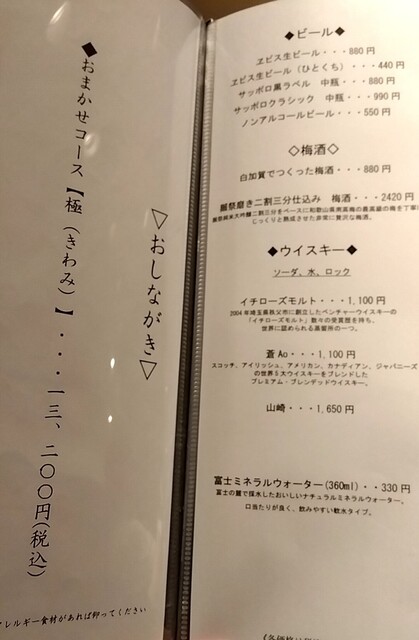 ▽おしながき▽
◆おまかせコース【極（きわみ）】・・・一三、二〇〇円(税込)
レルギー食材があれば仰ってください
◆ビール◆
ヱビス生ビール・・・880円
ヱビス生ビール（ひとくち）・・・440円
サッポロ黒ラベル　中瓶・・・880円
サッポロクラシック　中瓶・・・990円
ノンアルコールビール・・・550円
◇梅酒◇
白加賀でつくった梅酒・・・880円
獺祭磨き二割三分仕込み　梅酒・・・2420円
獺祭純米大吟醸二割三分をベースに和歌山県南高梅の最高級の梅を丁寧に
じっくりと熟成させた非常に贅沢な梅酒。
◆ウイスキー◆
ソーダ、水、ロック
イチローズモルト・・・1,100円
2004年埼玉県秩父市に創立したベンチャーウイスキーの
「イチローズモルト」数々の受賞歴を持ち、
世界に認められる蒸留所の一つ。
蒼 Ao・・・1,100円
スコッチ、アイリッシュ、アメリカン、カナディアン、ジャパニーズ
の世界５大ウイスキーをブレンドした
プレミアム・ブレンデッドウイスキー。
山崎・・・1,650円
富士ミネラルウォーター(360ml)・・330円
富士の麓で採水したおいしいナチュラルミネラルウォーター、
口当たりが良く、飲みやすい軟水タイプ。